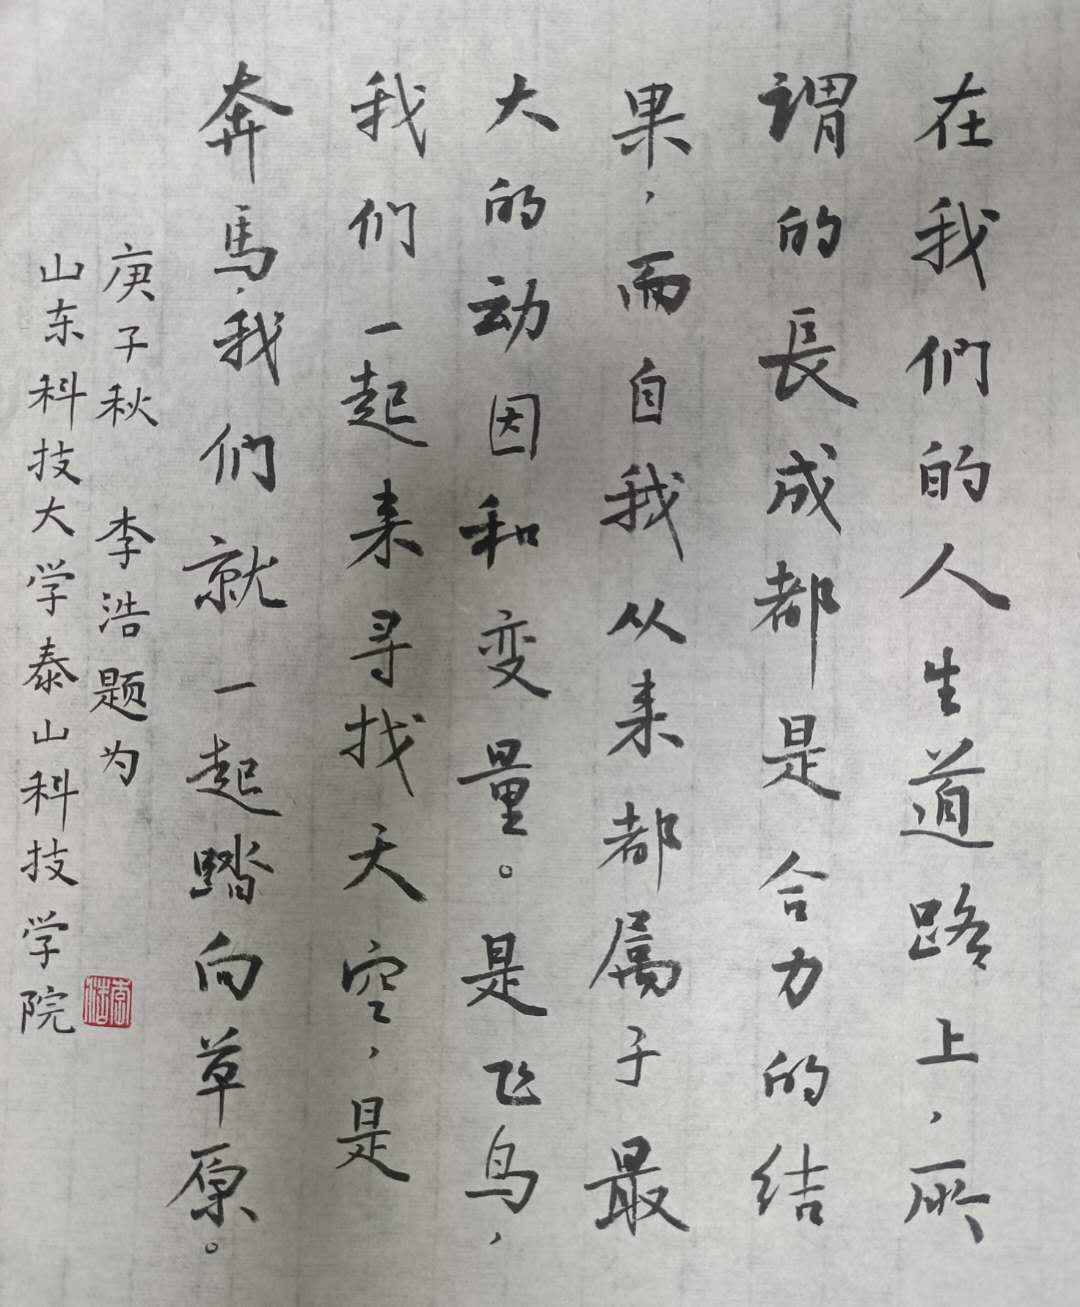 在我們的人生道路上，所
謂的長成都是合力的结
果，而自我从来都属于最
大的动因和变量。是飞鸟，
我们一起来寻找天空，是
奔馬，我们就一起踏向草原。
庚子秋 李浩题为
山东科技大学泰山科技学院
李浩